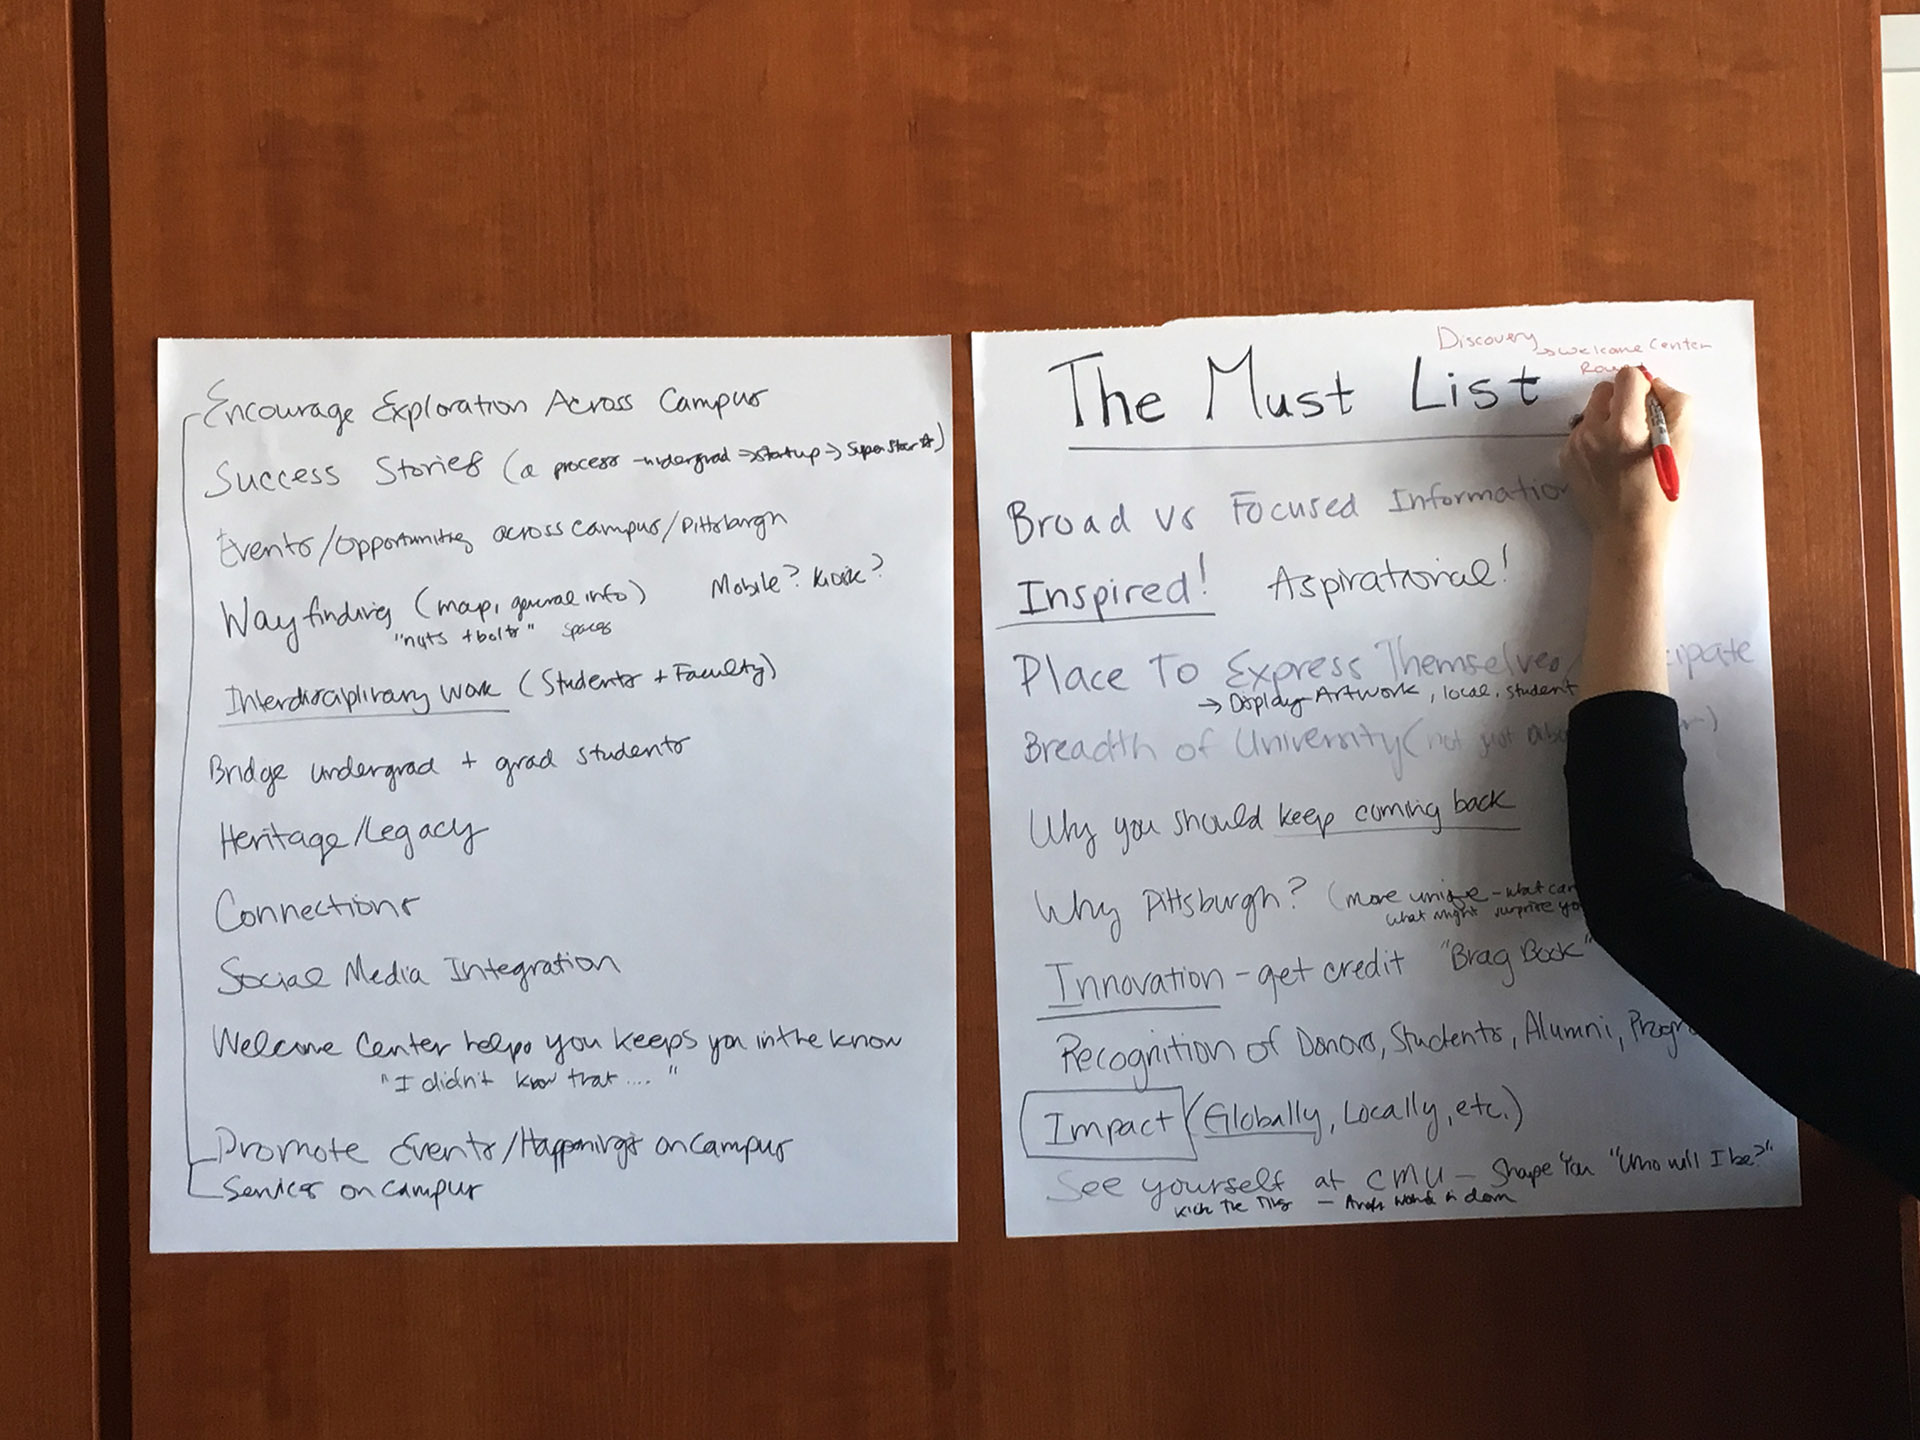 Encourage Exploration Across Campus
Success Stories (a process - undergrad → startup → Superstar☆)
Events/Opportunities across campus/Pittsburgh
Wayfinding (map, general info) Mobile? Kiosk?
"nuts + bolts" spaces
Interdisciplinary work (Students + Faculty)
Bridge undergrad + grad students
Heritage/Legacy
Connections
Social Media Integration
Welcome Center helps you keeps you in the know
"I didn't know that...."
Promote Events/Happenings on campus
Services on campus
Discovery
→ Welcome Center
The Must List
Broad vs Focused Information
Inspired! Aspirational!
Place To Express Themselves/
→ Display Artwork, local, student
Breadth of University (not just
Why you should keep coming back
Why Pittsburgh? (more unique - what can
what might surprise you
Innovation - get credit "Brag Book"
Recognition of Donors, Students, Alumni,
Impact (Globally, Locally, etc.)
See yourself at CMU - Shape You "Who will I be?"
Kick The Tires -